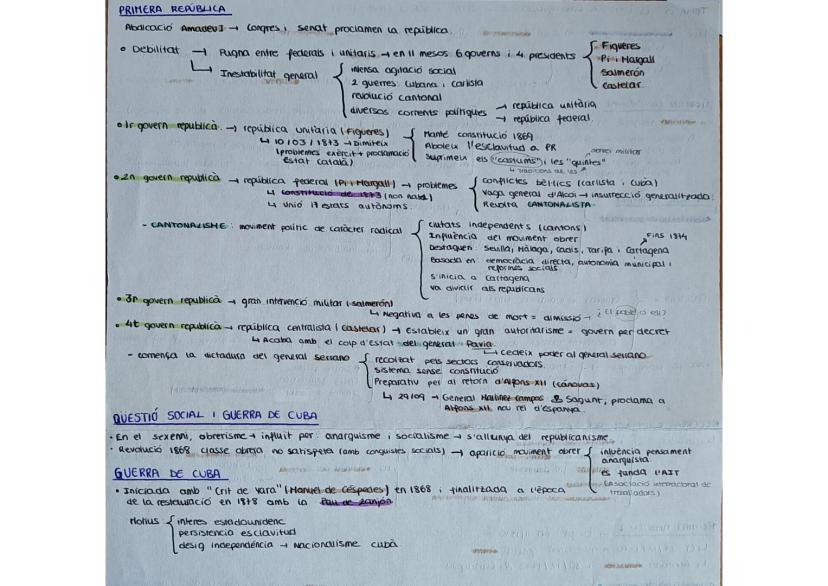 PRIMERA REPÚBLICA
Abdicació Amadeu I → Congres i senat proclamen la república.
• Debilitat → Pugna entre federals i unitaris → en 11 mesos 6 governs i 4 presidents { Figueres
Pi i Margall
Salmerón
Castelar.
↳ Inestabilitat general { intensa agitació social
2 guerres: cubana i carlista
revolució cantonal
diversos corrents polítiques → república unitària
→ república federal
• 1r govern republicà → república unitària (Figueres) { Manté constitució 1869
↳ 10/03/1873 → Dimiteix Aboleix l'esclavitud a PR
(problemes exèrcit + proclamació estat català) Suprimeix els "costums" i les "quintes"
servei militar
• 2n govern republicà → república federal (Pi i Margall) → problemes { conflictes bèl·lics (carlista i Cuba)
↳ constitució de 1873 (non nata) Vaga general d'Alcoi → insurrecció generalitzada
↳ Unió 17 estats autònoms. Revolta CANTONALISTA.
- CANTONALISME: moviment polític de caràcter radical { ciutats independents (cantons)
Influència del moviment obrer
Fins 1874
Destaquen: Sevilla, Màlaga, Cadis, Tarifa i Cartagena
Basada en: democràcia directa, autonomia municipal i
reformes socials.
S'inicia a Cartagena
va dividir als republicans
• 3r govern republicà → gran intervenció militar (Salmerón)
↳ Negativa a les penes de mort = dimissió →
• 4t govern republicà → república centralista (Castelar) → Estableix un gran autoritarisme = govern per decret
↳ Acaba amb el colp d'estat del general Pavia.
↳ Cedeix poder al general Serrano
- comença la dictadura del general Serrano { recolzat pels sectors conservadors.
Sistema sense constitució
Preparatiu per al retorn d'Alfons XII (Cánovas)
↳ 29/09 → General Martínez Campos Sagunt, proclama a
Alfons XII nou rei d'Espanya.
QÜESTIÓ SOCIAL I GUERRA DE CUBA
• En el sexenni, obrerisme → influit per: anarquisme i socialisme → s'allunya del republicanisme
• Revolució 1868 classe obrera no satisfeta (amb conquistes socials) → aparició moviment obrer { inluència pensament
anarquista.
es funda l'AIT
(Associació internacional de
treballadors)
GUERRA DE CUBA
• Iniciada amb "Crit de Yara" (Manuel de Céspedes) en 1868 i finalitzada a l'època
de la restauració en 1878 amb la Pau de Zanjón
Motius { interes estadounidenc
persistencia esclavitud
desig independència → Nacionalisme cubà.